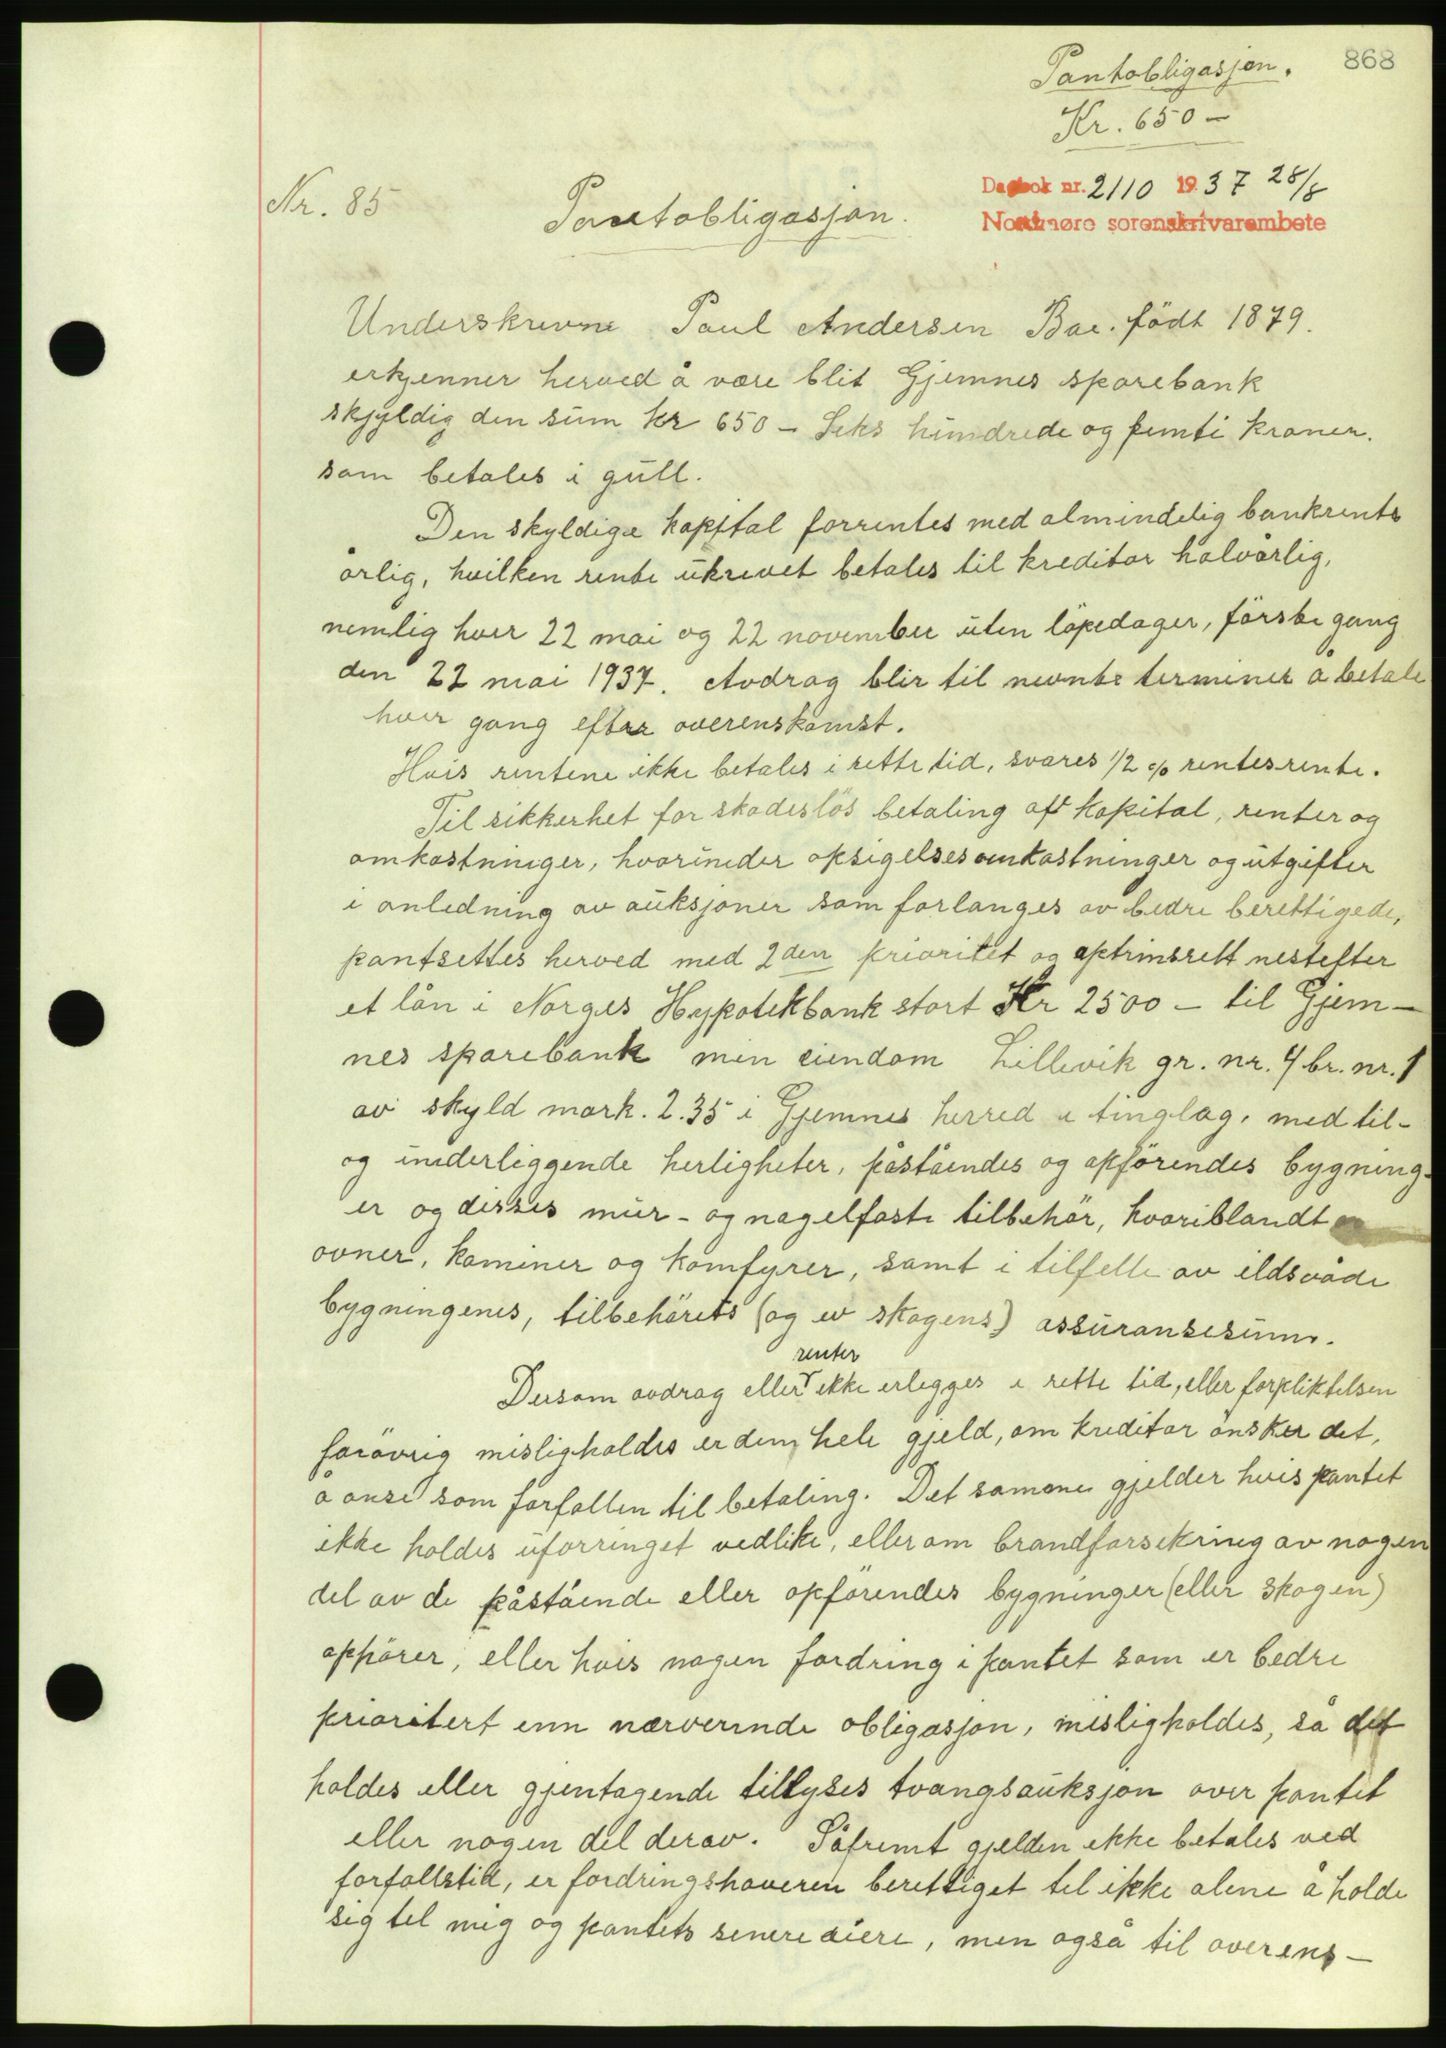 868
Pantobligasjon.
Kr. 650 –
Dagbok nr. 2110 1937 28/8
Nordmøre sorenskrivarembete
Nr. 85
Pantobligasjon.
Underskrevne Paul Andersen Boe. födt 1879.
erkjenner herved å være blit Gjemnes sparebank
skjyldig den sum kr 650 – Seks hundrede og femti kroner.
som betales i gull.
Den skyldige kapital forrentes med almindelig bankrente
årlig, hvilken rente ukrevet betales til kreditor halvårlig,
nemlig hver 22 mai og 22 november uten löpedager, förste gang
den 22 mai 1937. Avdrag blir til nevnte terminer å betale
hver gang efter overenskomst.
Hvis rentene ikke betales i rette tid, svares 1/2 % rentesrente.
Til sikkerhet for skadeslös betaling aft kapital, renter og
omkostninger, hvorunder opsigelsesomkostninger og utgifter
i anledning av auksjoner som forlanges av bedre berettigede,
pantsettes herved med 2den prioritet og optrinsrett nestefter
et lån i Norges Hypotekbank stort Kr 2500 – til Gjem-
nes sparebank min eiendom Lillevik gr. nr. 4 br. nr. 1
av skyld mark. 2.35 i Gjemnes herred i tinglag, med til-
og underliggende herligheter, påståendes og opförendes bygning-
er og disses mur- og nagelfaste tilbehör, hvoriblandt
ovner, kaminer og komfyrer, samt i tilfelle av ildsvåde
bygningenes, tilbehörets (og ev skogens) assuransesum.
renter
Dersom avdrag eller ikke erlegges i rette tid, eller forpliktelsen
forövrig misligholdes er den hele gjeld, om kreditor önsker det,
å anse som forfallen til betaling. Det samme gjelder hvis pantet
ikke holdes uforringet vedlike, eller om brandforsikring av nogen
del av de påstående eller opförendes bygninger (eller skogen)
ophörer, eller hvis nogen fordring i pantet som er bedre
prioritert enn nærverende obligasjon, misligholdes, så det
holdes eller gjentagende tillyses tvangsauksjon over pantet
eller nogen del derav. Såfremt gjelden ikke betales ved
forfallstid, er fordringshaveren berettiget til ikke alene å holde
sig til mig og pantets senere eiere, men også til overens-